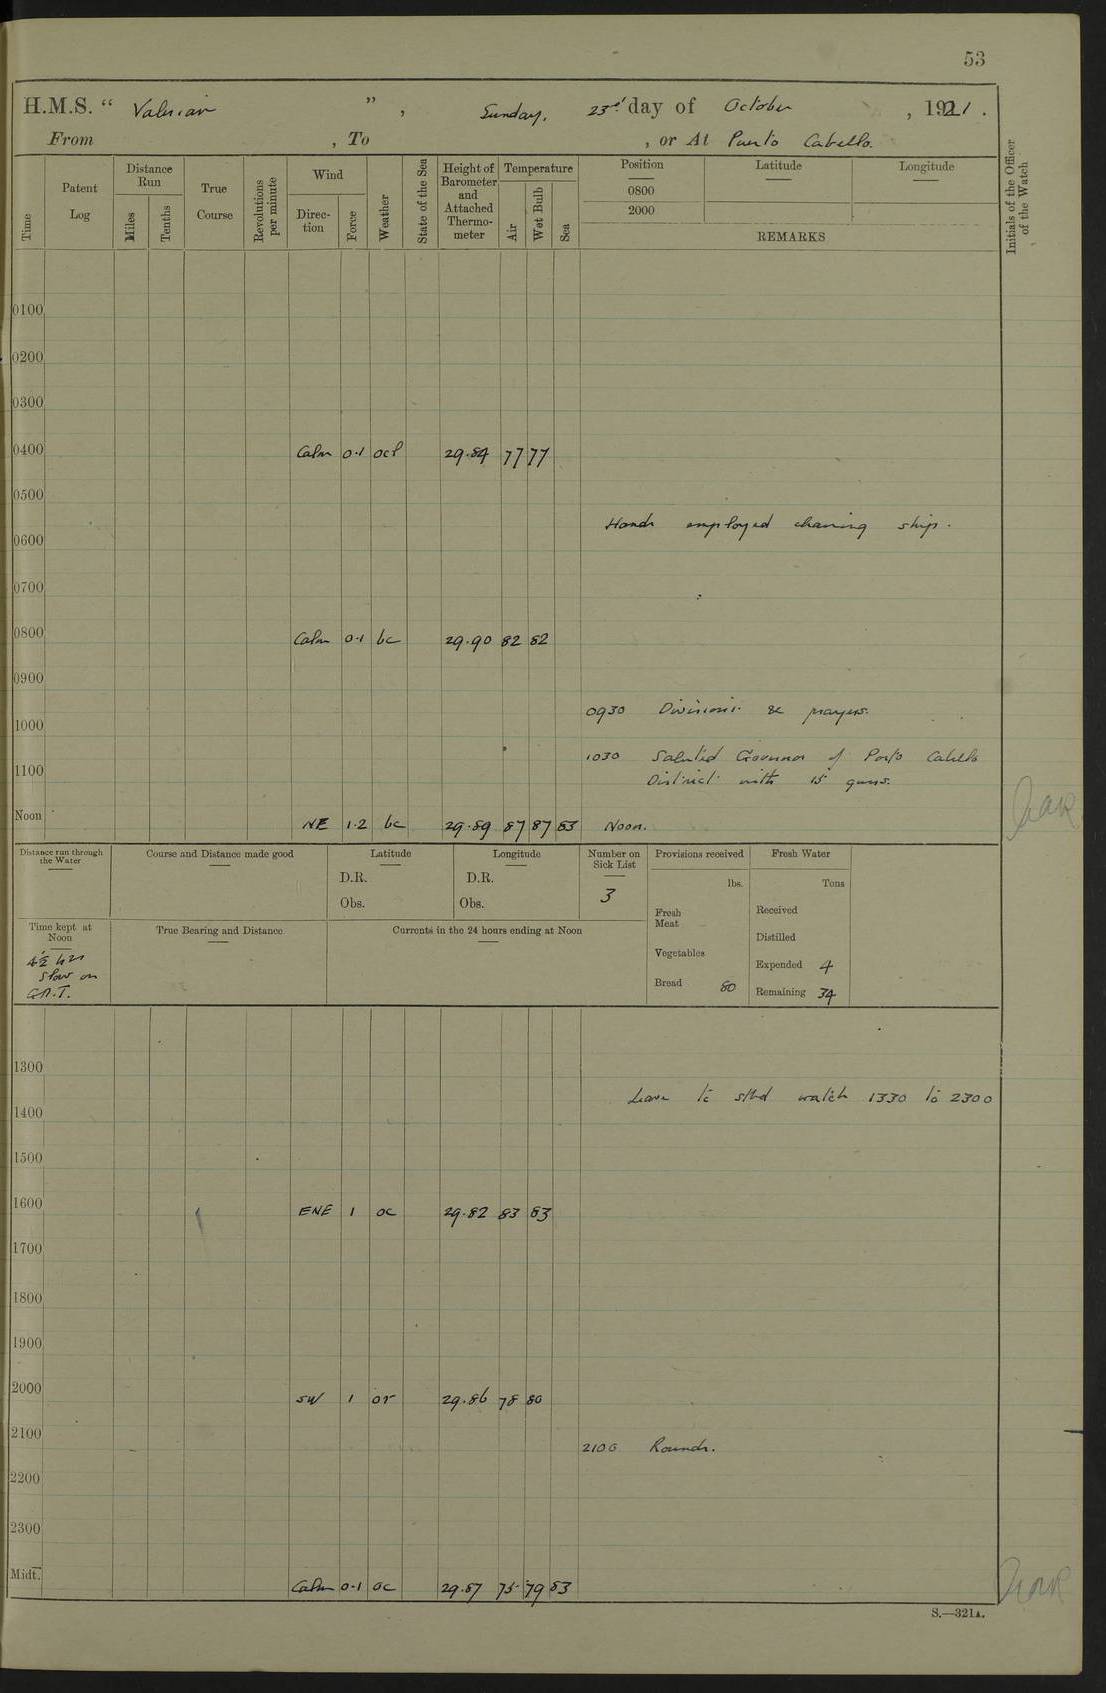 53
H.M.S. "Valerian", Sunday, 23rd day of October, 1921.
From , To , or At Puerto Cabello.
Time
Patent Log
Distance Run
Miles
Tenths
True Course
Revolutions per minute
Wind
Direction
Force
Weather
State of the Sea
Height of Barometer and Attached Thermometer
Temperature
Air
Wet Bulb
Sea
Position
0800
2000
Latitude
Longitude
REMARKS
Initials of the Officer of the Watch
0100
0200
0300
0400 Calm 0.1 29.84 77 77
0500
Hands employed cleaning ship.
0600
0700
0800 Calm 0.1 bc 29.90 82 82
0900
0930 Divisions & prayers.
1000
1030 Saluted Governor of Porto Cabello
District with 15 guns.
1100
Noon NE 1.2 bc 29.89 87 87 83 Noon.
Distance run through the Water
Course and Distance made good
Latitude
D.R.
Obs.
Longitude
D.R.
Obs.
Number on Sick List
3
Provisions received
lbs.
Fresh Meat
Vegetables
Bread 80
Fresh Water
Tons
Received
Distilled
Expended 4
Remaining 34
Time kept at Noon
4½ hrs
slow on
G.M.T.
True Bearing and Distance
Currents in the 24 hours ending at Noon
1300
Leave to stbd watch 1330 to 2300
1400
1500
1600 ENE 1 oc 29.82 83 83
1700
1800
1900
2000 SW 1 or 29.86 78 80
2100
2100 Rounds.
2200
2300
Midt. Calm 0.1 oc 29.87 75 79 83
S.—321A.